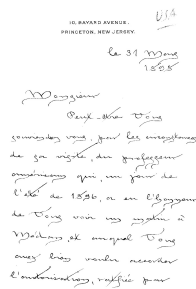 USA
10, BAYARD AVENUE,
PRINCETON, NEW JERSEY.
le 31 Mars
Monsieur
Peut-être Vous
vous, par les
de sa visite, du professeur
américain qui, un jour de
l'été de 1896, a eu l'honneur
de Vous voir un matin à
et auquel Vous
avez bien voulu accorder
l'autorisation, par